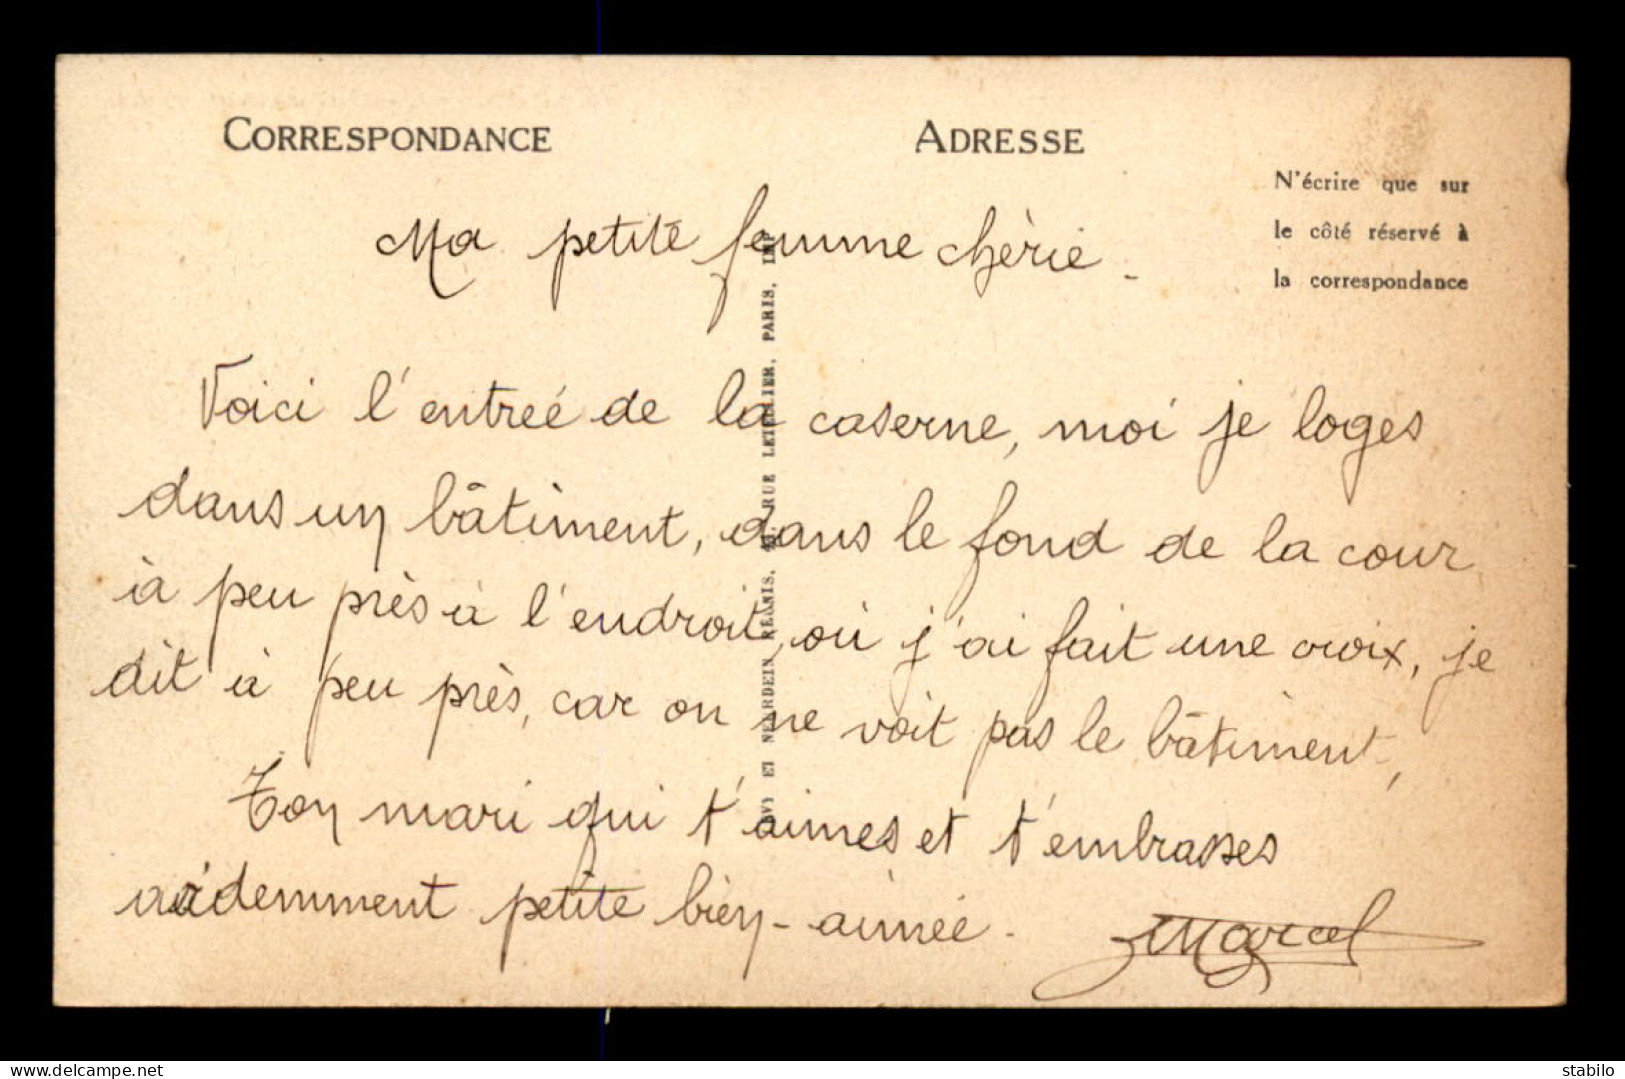 CORRESPONDANCE
ADRESSE
N'écrire que sur
le côté réservé à
la correspondance
Ma petite femme chèrie -
Voici l'entreé de la caserne, moi je loges
dans un bâtiment, dans le fond de la cour
à peu près à l'endroit, où j'ai fait une croix, je
dit à peu près, car on ne voit pas le bâtiment,
Ton mari qui t'aimes et t'embrasses
ardemment petite bien-aimée -
Marcel
NEURDEIN RÉUNIS, RUE LETELLIER, PARIS, IMP
delcampe.net
stabilo